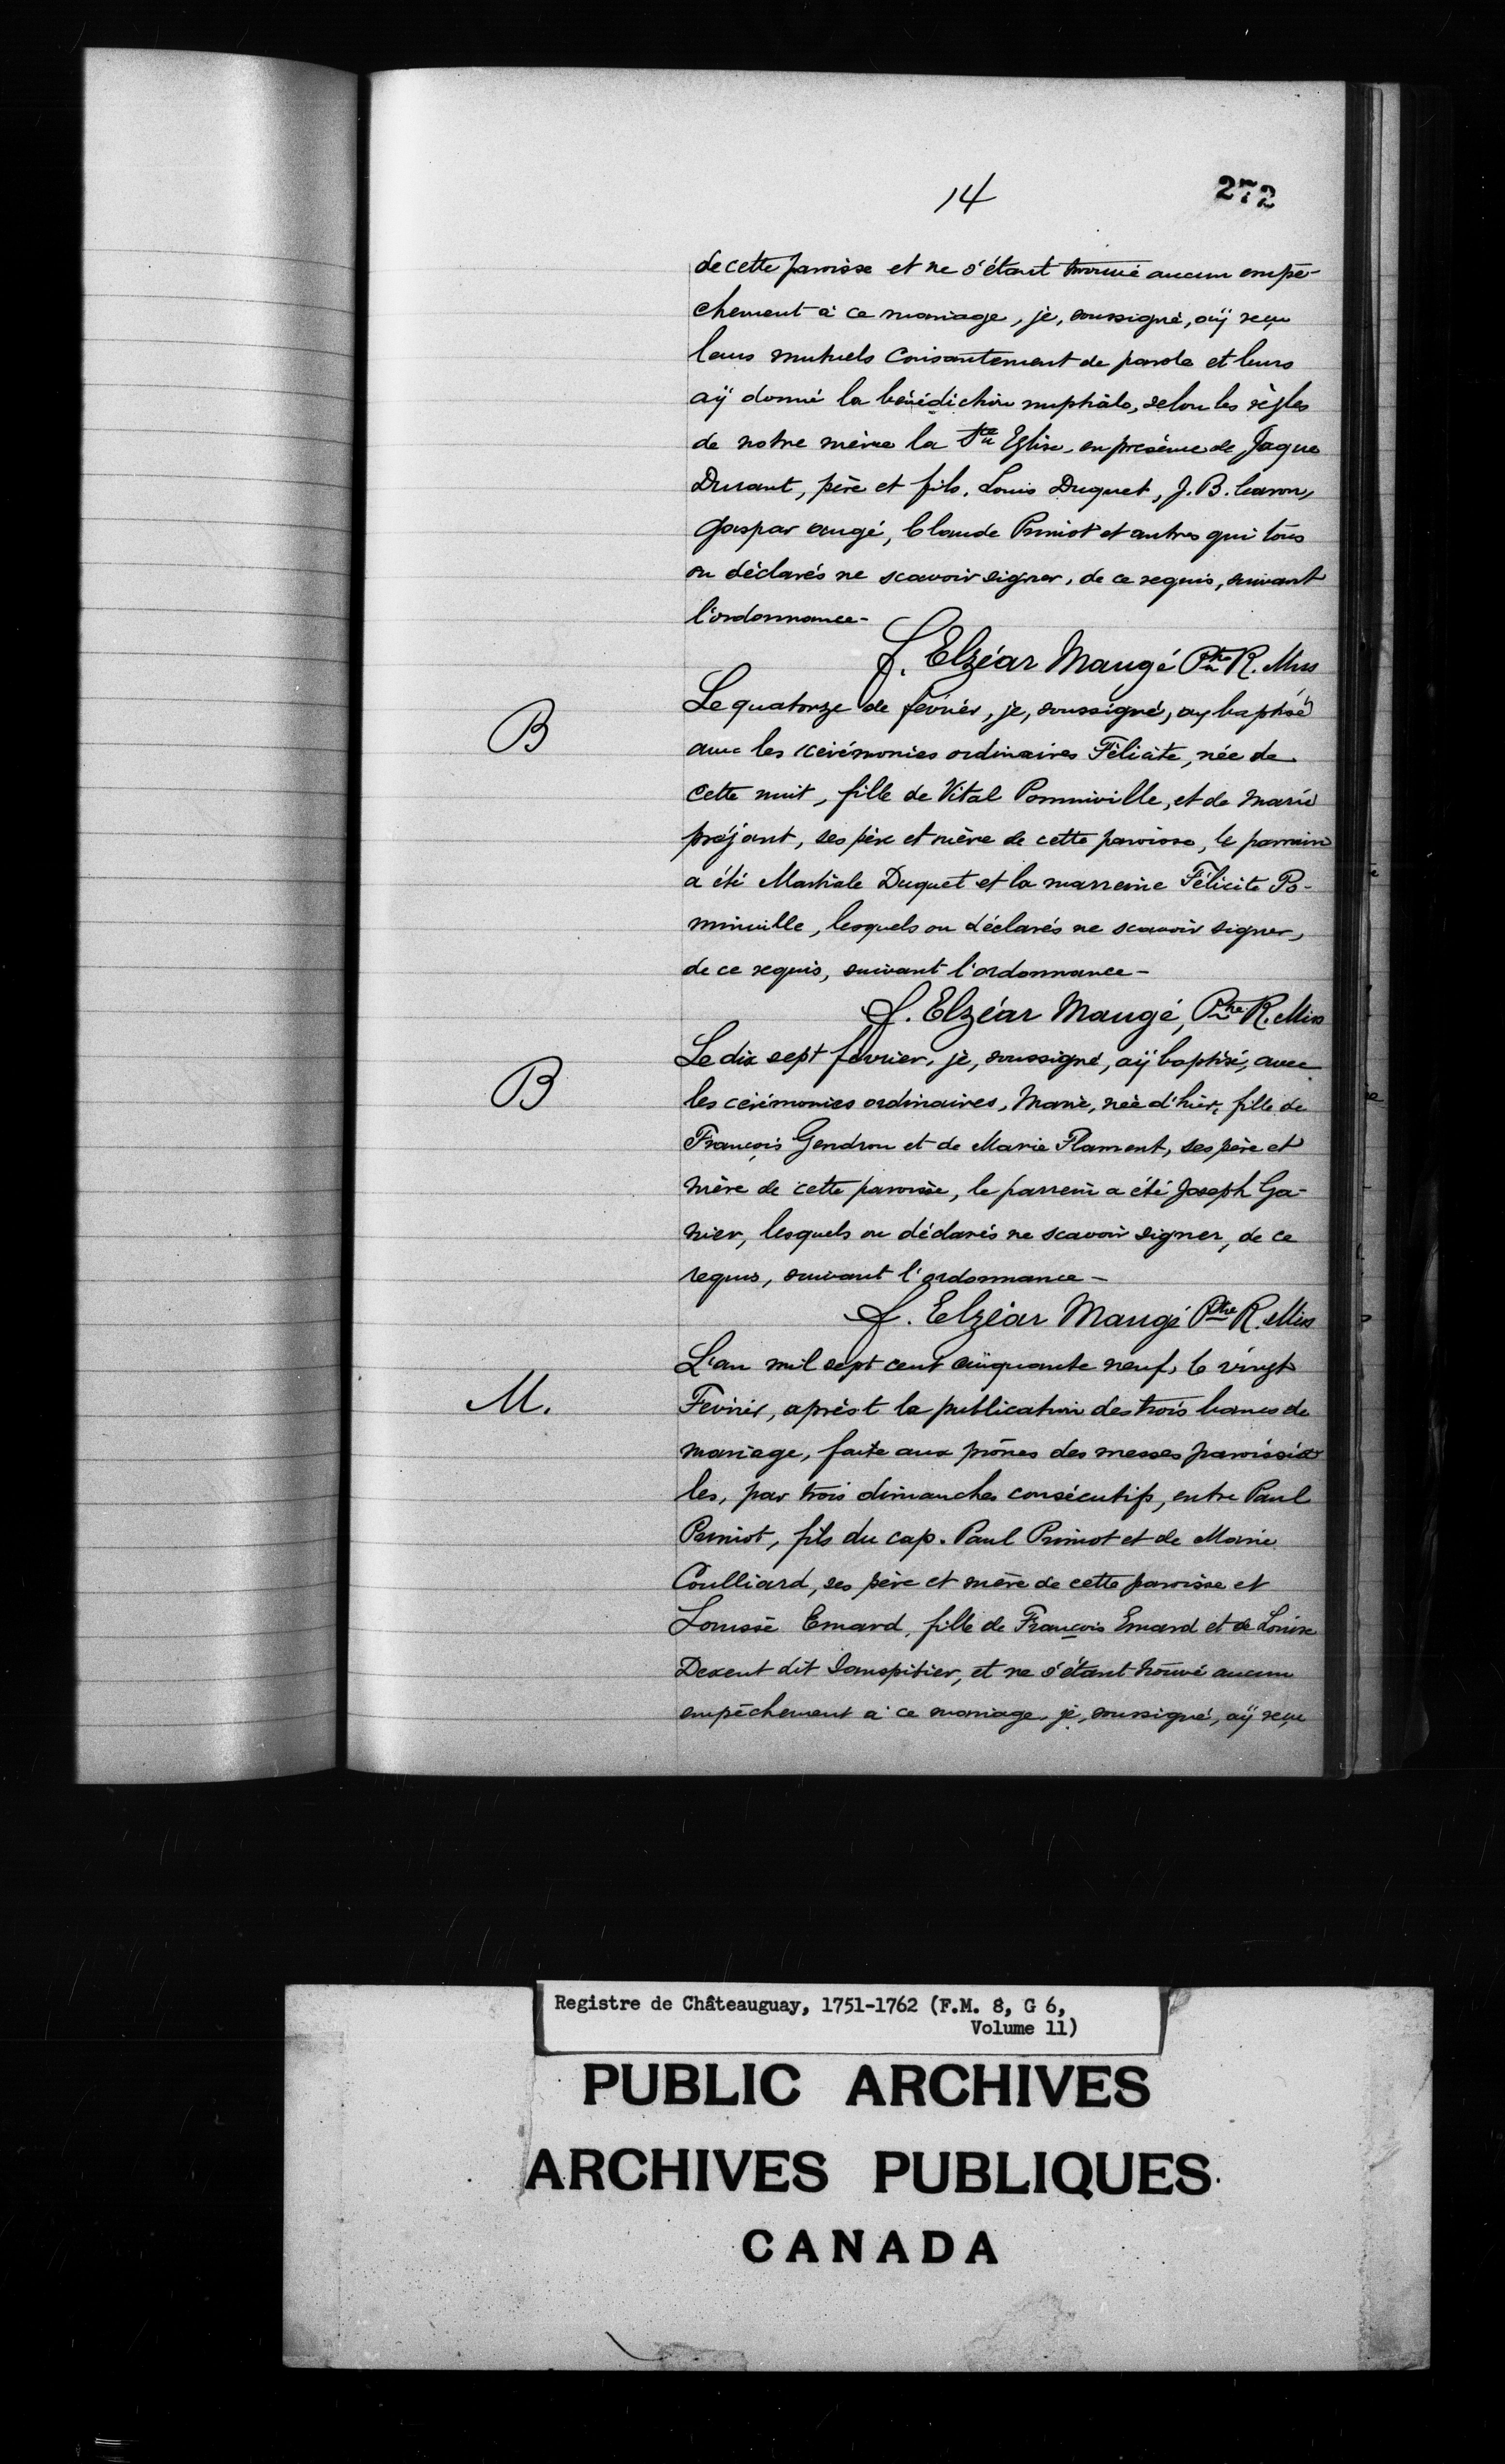 14
272
de cette paroisse et ne s'étant trouvé aucun empê-
chement à ce mariage, je, soussigné, aÿ reçu
leurs mutuels consantement de parole et leurs
aÿ donné la bénédiction nuptiale, selon les règles
de notre mère la Ste Eglise, en présence de Jaque
Durant, père et fils, Louis Duquet, J. B. Caron,
Gaspar augé, Claude Primot et autres qui tous
on déclarés ne scavoir signer, de ce requis, suivant
l'ordonnance-
f. Elzéar Maugé Ptre R. Miss
B
Le quatorze de février, je, soussigné, ay baptisé
avec les cérémonies ordinaires Félicite, née de
cette nuit, fille de Vital Pomminville, et de Marie
préjant, ses père et mère de cette paroisse, le parrain
a été Martiale Duquet et la marreine Félicite Po-
minville, lesquels on déclarés ne scavoir signer,
de ce requis, suivant l'ordonnance-
f. Elzéar Maugé, Ptre R. Miss
B
Le dix sept février, je, soussigné, aÿ baptisé, avec
les cérémonies ordinaires, Marie, née d'hier, fille de
François Gendron et de Marie Flament, ses père et
mère de cette paroisse, le parrein a été Joseph Ga-
nier, lesquels on déclarés ne scavoir signer, de ce
requis, suivant l'ordonnance-
f. Elzéar Maugé Ptre R. Miss
M.
L'an mil sept cent cinquante neuf, le vingt
Fevrier, aprèst la publication des trois bancs de
mariage, faite aux prônes des messes paroissia
les, par trois dimanches consécutifs, entre Paul
Primot, fils du cap. Paul Primot et de Marie
Coulliard, ses père et mère de cette paroisse et
Louisse Emard, fille de François Emard et de Louise
Dexent dit Sanspitier, et ne s'étant trouvé aucun
empêchement à ce mariage, je, soussigné, aÿ reçu
Registre de Châteauguay, 1751-1762 (F.M. 8, G 6,
Volume 11)
PUBLIC ARCHIVES
ARCHIVES PUBLIQUES
CANADA